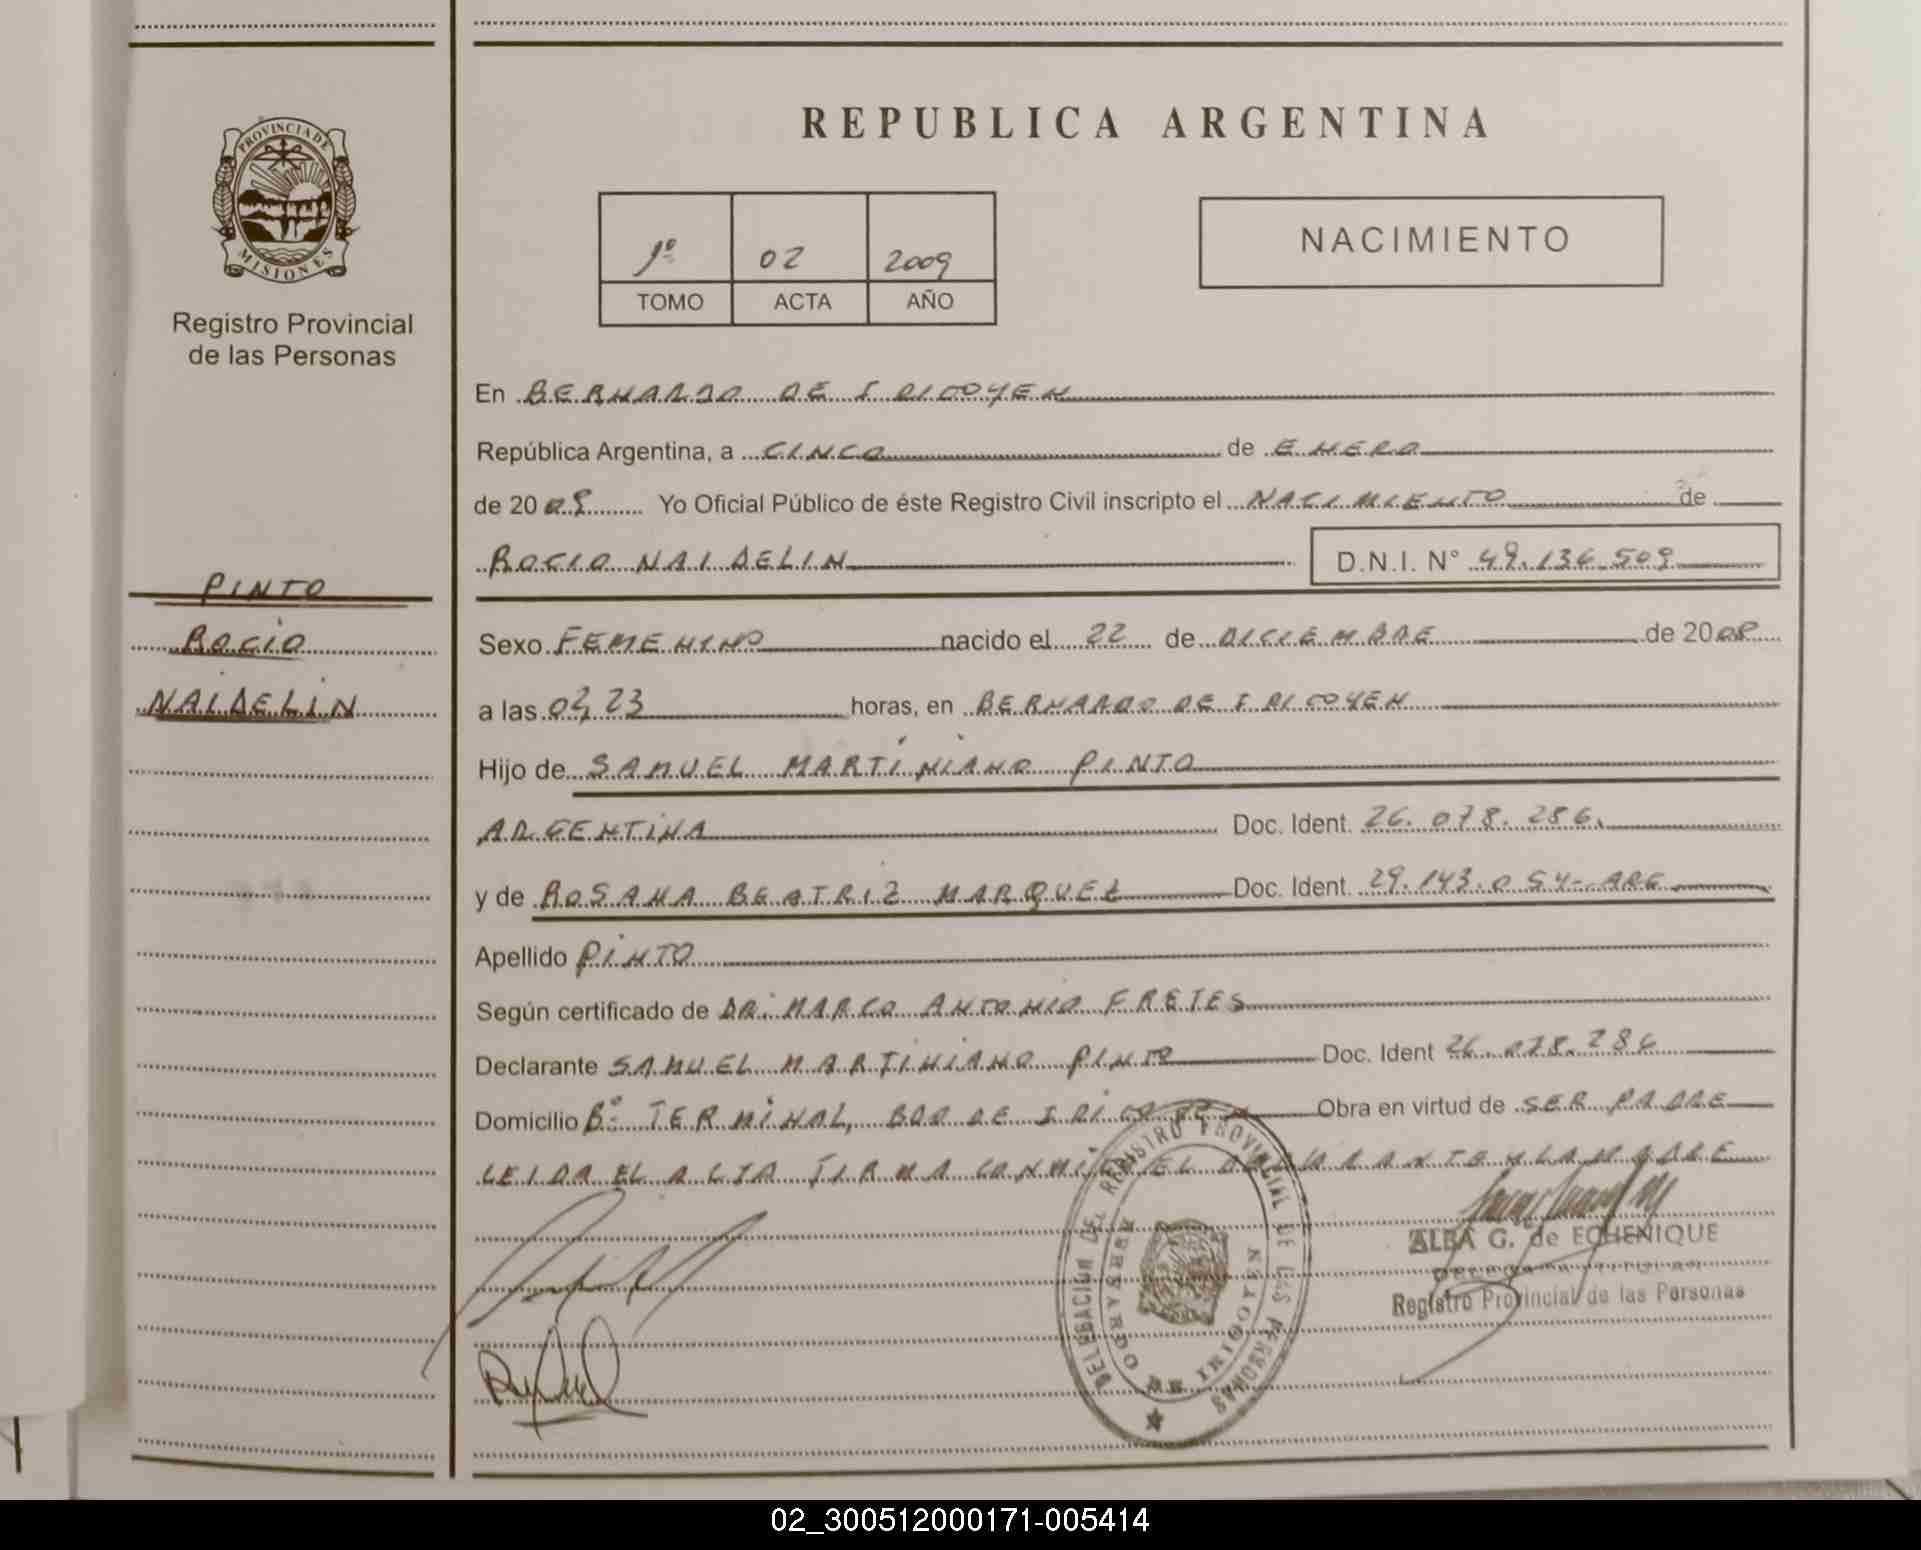 REPUBLICA ARGENTINA
PROVINCIA DE
MISIONES
Registro Provincial
de las Personas
1º 02 2009
TOMO ACTA AÑO
NACIMIENTO
En BERNARDO DE IRIGOYEN
República Argentina, a CINCO de ENERO
de 2009 Yo Oficial Público de éste Registro Civil inscripto el NACIMIENTO de
ROCIO NAIDELIN D.N.I. N° 49.136.509
PINTO
ROCIO
NAIDELIN
Sexo FEMENINO nacido el 22 de DICIEMBRE de 2008
a las 02,23 horas, en BERNARDO DE IRIGOYEN
Hijo de SAMUEL MARTINIANO PINTO
ARGENTINA Doc. Ident. 26.078.286.
y de ROSANA BEATRIZ MARQUEZ Doc. Ident. 29.143.054-ARG
Apellido PINTO
Según certificado de DR. MARCO ANTONIO FRETES
Declarante SAMUEL MARTINIANO PINTO Doc. Ident 26.078.286
Domicilio Bº TERMINAL, BDO DE IRIGOYEN Obra en virtud de SER PADRE
LEIDA EL ACTA FIRMA CONMIGO EL DECLARANTE Y LA MADRE
DELEGACION DEL REGISTRO PROVINCIAL DE LAS PERSONAS
BERNARDO DE IRIGOYEN
ALBA G. de ECHENIQUE
DELEGADA TITULAR
Registro Provincial de las Personas
02_300512000171-005414